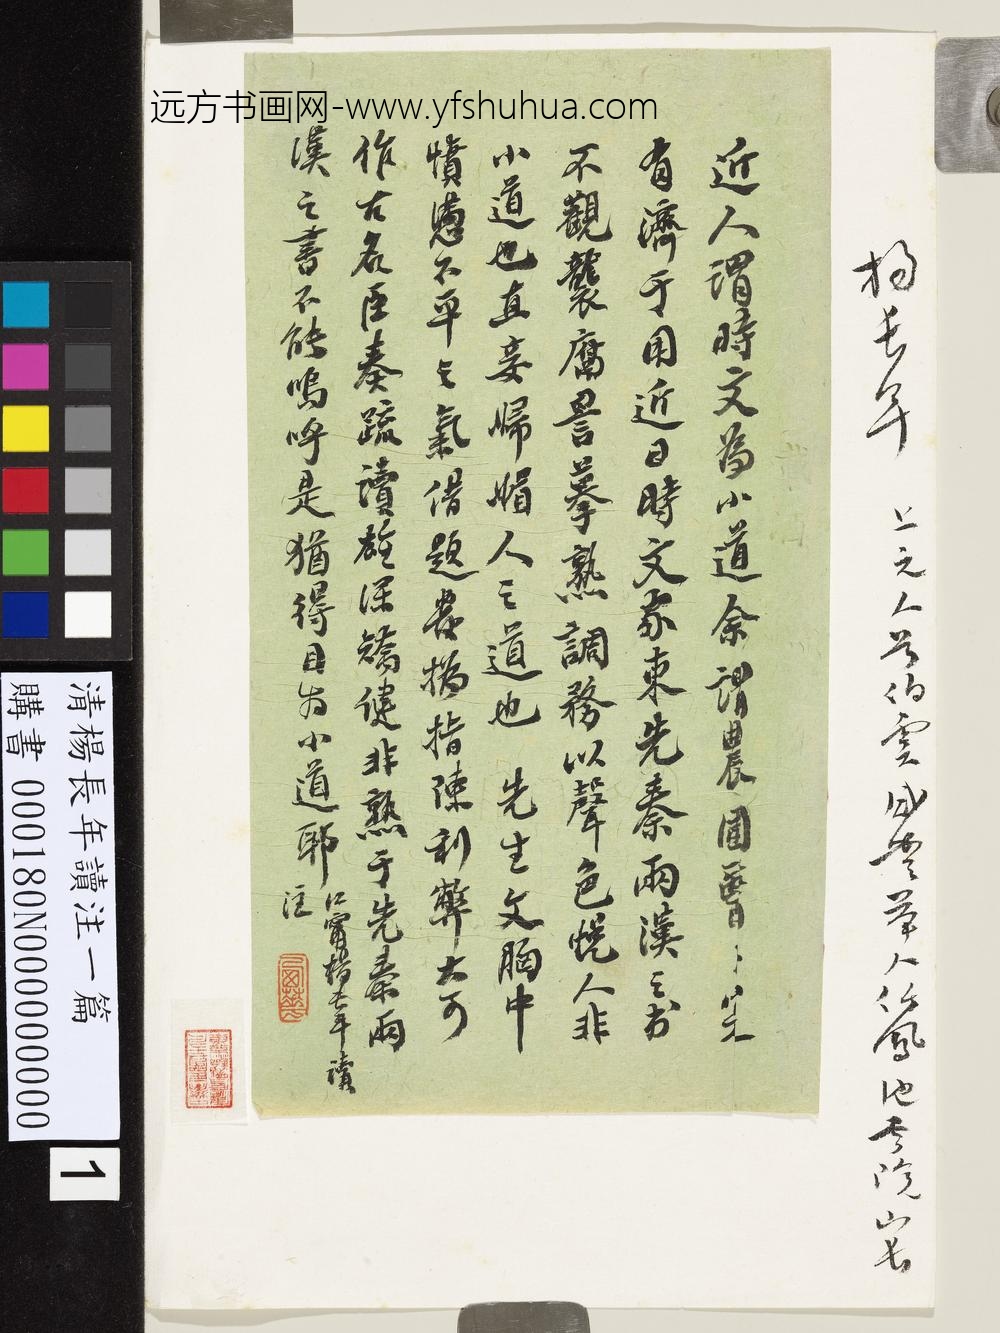 远方书画网-www.yfshuhua.com
近人謂時文為小道余謂農圃醫卜皆
有濟于用近日時文家束先秦兩漢之书
不觀襲腐詈摹熟調務以聲色悅人非
小道也直妾婦媚人之道也 先生文胸中
憤懣不平之氣借題發攄指陳利弊大可
作古名臣奏疏讀雄深矯健非熟于先秦兩
漢之書不能嗚呼是猶得目为小道耶
江甯楊長年讀
注
楊長年
上元人字伯雲咸豐舉人
鳳池書院山長
清楊長年讀注一篇
購書 000180N000000000
1